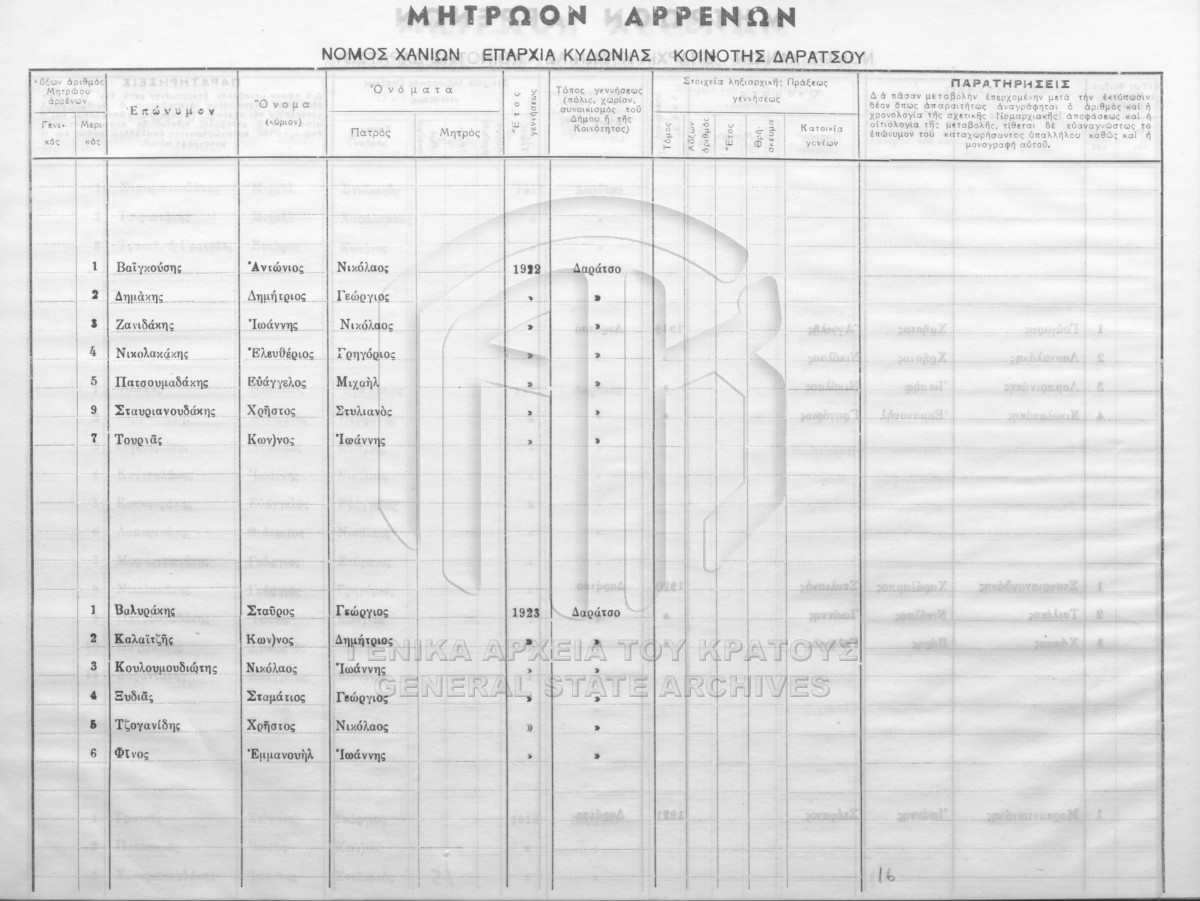 ΜΗΤΡΩΟΝ ΑΡΡΕΝΩΝ
ΝΟΜΟΣ ΧΑΝΙΩΝ ΕΠΑΡΧΙΑ ΚΥΔΩΝΙΑΣ ΚΟΙΝΟΤΗΣ ΔΑΡΑΤΣΟΥ
Αὔξων ἀριθμὸς Μητρώου ἀρρένων
Γενικὸς
Μερικὸς
Ἐπώνυμον
Ὄνομα (κύριον)
Ὀνόματα
Πατρὸς
Μητρὸς
Ἔτος γεννήσεως
Τόπος γεννήσεως (πόλις, χωρίον, συνοικισμὸς τοῦ Δήμου ἢ τῆς Κοινότητος)
Στοιχεῖα ληξιαρχικῆς Πράξεως γεννήσεως
Τόμος
Αὔξων ἀριθμὸς
Ἔτος
Θρήσκευμα
Κατοικία γονέων
ΠΑΡΑΤΗΡΗΣΕΙΣ
Δ ὰ πᾶσαν μεταβολὴν ἐπερχομένην μετὰ τὴν ἐκτύπωσιν
δέον ὅπως ἀπαραιτήτως ἀναγράφηται ὁ ἀριθμὸς καὶ ἡ
χρονολογία τῆς σχετικῆς Νομαρχιακῆς ἀποφάσεως καὶ ἡ
αἰτιολογία τῆς μεταβολῆς, τίθεται δὲ εὐαναγνώστως τὸ
ἐπώνυμον τοῦ καταχωρήσαντος ὑπαλλήλου καθὼς καὶ ἡ
μονογραφὴ αὐτοῦ.
1 Βαϊγκούσης Ἀντώνιος Νικόλαος 1922 Δαράτσο
2 Δημάκης Δημήτριος Γεώργιος » »
3 Ζανιδάκης Ἰωάννης Νικόλαος » »
4 Νικολακάκης Ἐλευθέριος Γρηγόριος » »
5 Πατσουμαδάκης Εὐάγγελος Μιχαὴλ » »
9 Σταυριανουδάκης Χρῆστος Στυλιανὸς » »
7 Τουριᾶς Κων)νος Ἰωάννης » »
1 Βαλυράκης Σταῦρος Γεώργιος 1923 Δαράτσο
2 Καλαϊτζῆς Κων)νος Δημήτριος » »
3 Κουλουμουδιώτης Νικόλαος Ἰωάννης » »
4 Ξυδιᾶς Σταμάτιος Γεώργιος » »
5 Τζογανίδης Χρῆστος Νικόλαος » »
6 Φῖνος Ἐμμανουὴλ Ἰωάννης » »
ΓΕΝΙΚΑ ΑΡΧΕΙΑ ΤΟΥ ΚΡΑΤΟΥΣ
GENERAL STATE ARCHIVES
16